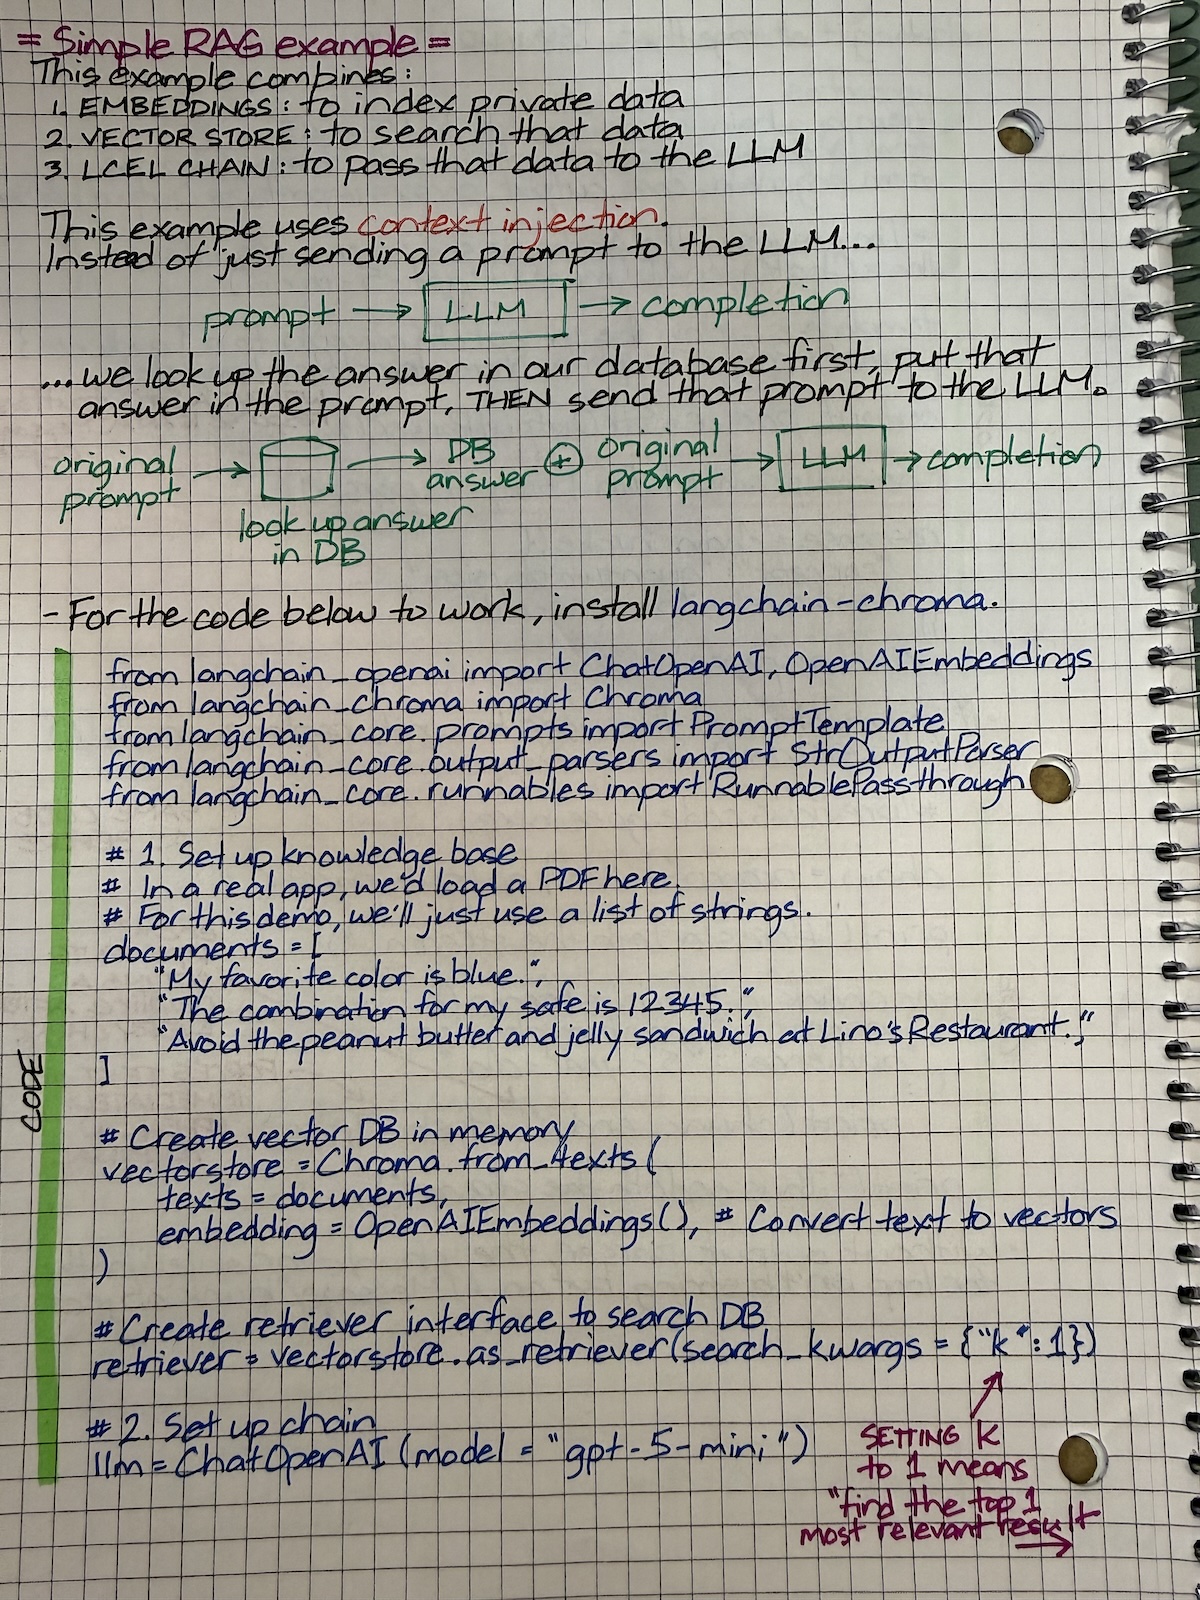 = Simple RAG example =
This example combines:
1. EMBEDDINGS: to index private data
2. VECTOR STORE: to search that data
3. LCEL CHAIN: to pass that data to the LLM
This example uses context injection.
Instead of just sending a prompt to the LLM...
prompt → LLM → completion
...we look up the answer in our database first, put that
answer in the prompt, THEN send that prompt to the LLM.
original prompt → look up answer in DB → DB answer + original prompt → LLM → completion
- For the code below to work, install langchain-chroma.
CODE
from langchain_openai import ChatOpenAI, OpenAIEmbeddings
from langchain_chroma import Chroma
from langchain_core.prompts import PromptTemplate
from langchain_core.output_parsers import StrOutputParser
from langchain_core.runnables import RunnablePassthrough
# 1. Set up knowledge base
# In a real app, we'd load a PDF here.
# For this demo, we'll just use a list of strings.
documents = [
"My favorite color is blue.",
"The combination for my safe is 12345.",
"Avoid the peanut butter and jelly sandwich at Lino's Restaurant.",
]
# Create vector DB in memory
vectorstore = Chroma.from_texts(
texts = documents,
embedding = OpenAIEmbeddings(), # Convert text to vectors
)
# Create retriever interface to search DB
retriever = vectorstore.as_retriever(search_kwargs = {"k": 1})
# 2. Set up chain
llm = ChatOpenAI(model = "gpt-5-mini")
SETTING K
to 1 means
"find the top 1
most relevant result
→